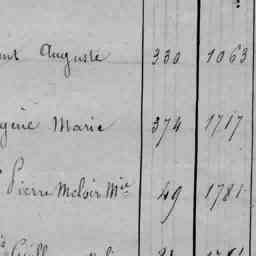 Auguste 330 1063
Marie 374 1717
Pierre Meloir Mie 49 1781